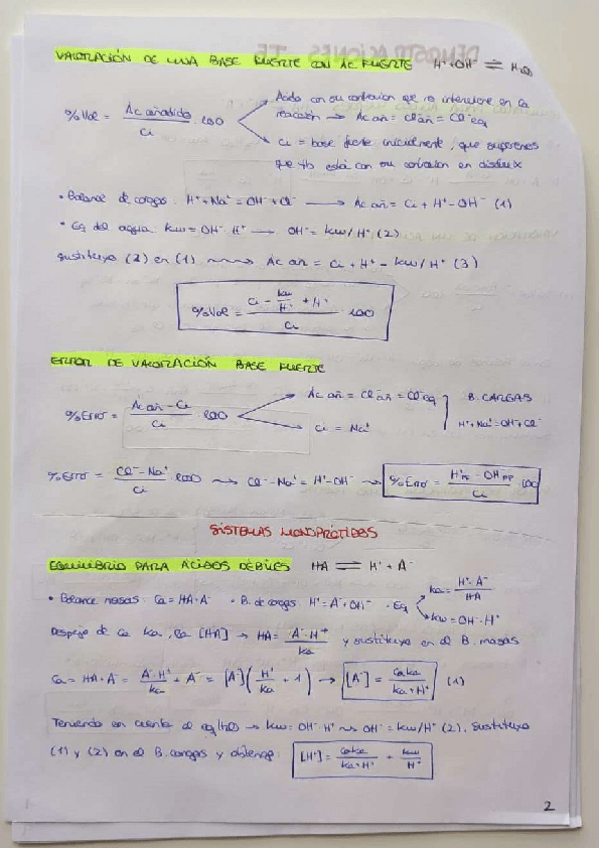 VALORACIÓN DE UNA BASE FUERTE CON AC FUERTE H⁺+OH⁻ ⇌ H₂O
%Vol = Ac añadido / Ci · 100
Ácido con su contraion que no interviene en la
reacción → Ac añ = Cl⁻añ = Cl⁻eq
Ci = base fuerte inicialmente, que suponemos
que tb está con su contraion en disoluc
• Balance de cargas: H⁺+Na⁺ = OH⁻+Cl⁻ → Ac añ = Ci + H⁺ - OH⁻ (1)
• Eq del agua: Kw = OH⁻·H⁺ → OH⁻ = Kw/H⁺ (2)
sustituyo (2) en (1) → Ac añ = Ci + H⁺ - Kw/H⁺ (3)
%Vol = (Ci - Kw/H⁺ + H⁺) / Ci · 100
ERROR DE VALORACIÓN BASE FUERTE
%Error = (Ac añ - Ci) / Ci · 100
Ac añ = Cl⁻añ = Cl⁻eq
Ci = Na⁺
B. CARGAS
H⁺+Na⁺ = OH⁻+Cl⁻
%Error = (Cl⁻ - Na⁺) / Ci · 100 → Cl⁻ - Na⁺ = H⁺ - OH⁻ → %Error = (H⁺pf - OH⁻pf) / Ci · 100
SISTEMAS MONOPRÓTICOS
EQUILIBRIO PARA ÁCIDOS DÉBILES HA ⇌ H⁺ + A⁻
• Balance masas: Ca = HA + A⁻ • B. de cargas: H⁺ = A⁻ + OH⁻ • Eq
Ka = H⁺·A⁻ / HA
Kw = OH⁻·H⁺
Despejo de Ca Ka, Ca [HA] → HA = A⁻·H⁺ / Ka y sustituyo en el B. masas
Ca = HA + A⁻ = A⁻·H⁺ / Ka + A⁻ = [A⁻] (H⁺ / Ka + 1) → [A⁻] = CaKa / (Ka + H⁺) (1)
Teniendo en cuenta el eq(H₂O) → Kw = OH⁻·H⁺ → OH⁻ = Kw/H⁺ (2). Sustituyo
(1) y (2) en el B. cargas y obtengo: [H⁺] = CaKa / (Ka + H⁺) + Kw / H⁺
2